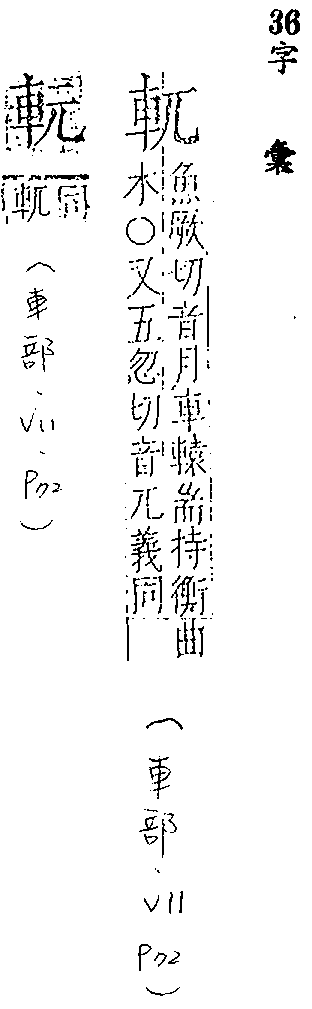 36 字彙
軏 魚厥切音月車轅耑持衡曲
木○又五忽切音兀義同
（車部．VII P72）
䡇 軏同
（車部．VII．P72）